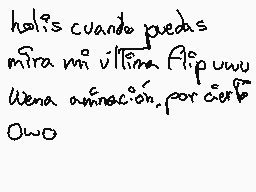 holis cuando puedas
mira mi última flip uwu
wena aminación, por cierto
OwO